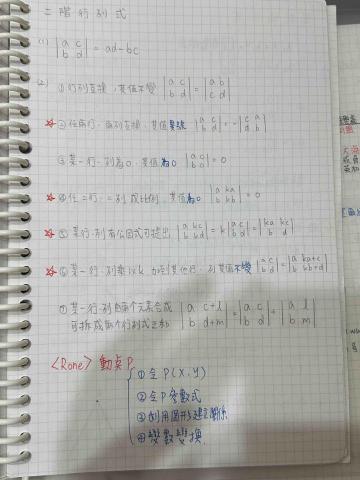 二階行列式
(1) |a c; b d| = ad-bc
(2) ①行列互換,其值不變 |a c; b d| = |a b; c d|
☆②任兩行.兩列互換,其值異號 |a c; b d| = -|c a; d b|
③某一行.列為0,其值為0 |a 0; b 0| = 0
☆④任二行.二列成比例,其值為0 |a ka; b kb| = 0
☆⑤某行.列有公因式可提出 |a kc; b kd| = k|a c; b d| = |ka kc; b d|
☆⑥某一行.列乘以k加到其他行.列其值不變 |a c; b d| = |a ka+c; b kb+d|
⑦某一行.列的兩個元素合成 |a c+l; b d+m| = |a c; b d| + |a l; b m|
可拆成兩個行列式之和
<Rone> 動點P
①令P(x,y)
②令P參數式
③利用圖形建立關係
④變數變換